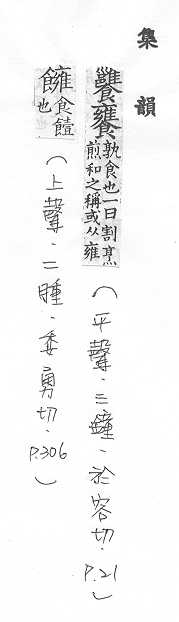 集韻
饔孰食也一曰割烹
煎和之稱或从雍
(平聲.三鐘.於容切.P.21)
食饐
也
(上聲.二腫.委勇切.P.306)